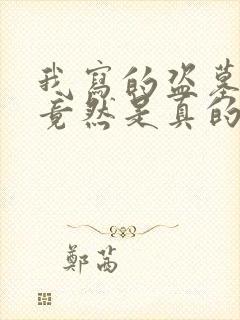 我寫的盜墓
竟然是真的
鄭茜